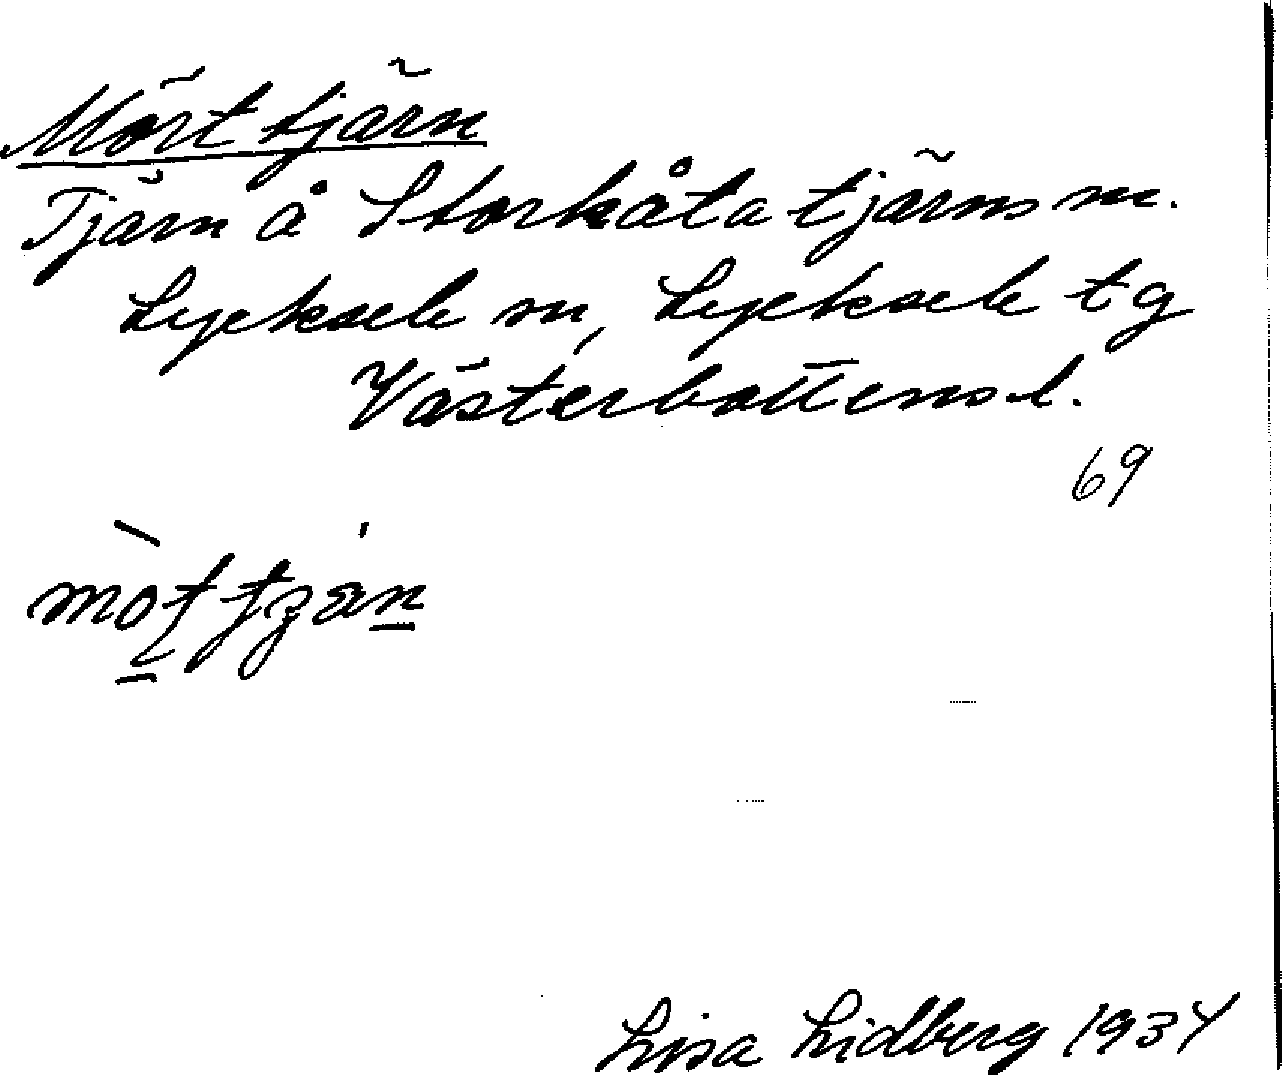 Mörttjärn
Tjärn å Storkåtatjärns m.
Lycksele sn, Lycksele tg
Västerbottens l.
69
Lisa Lidberg 1934